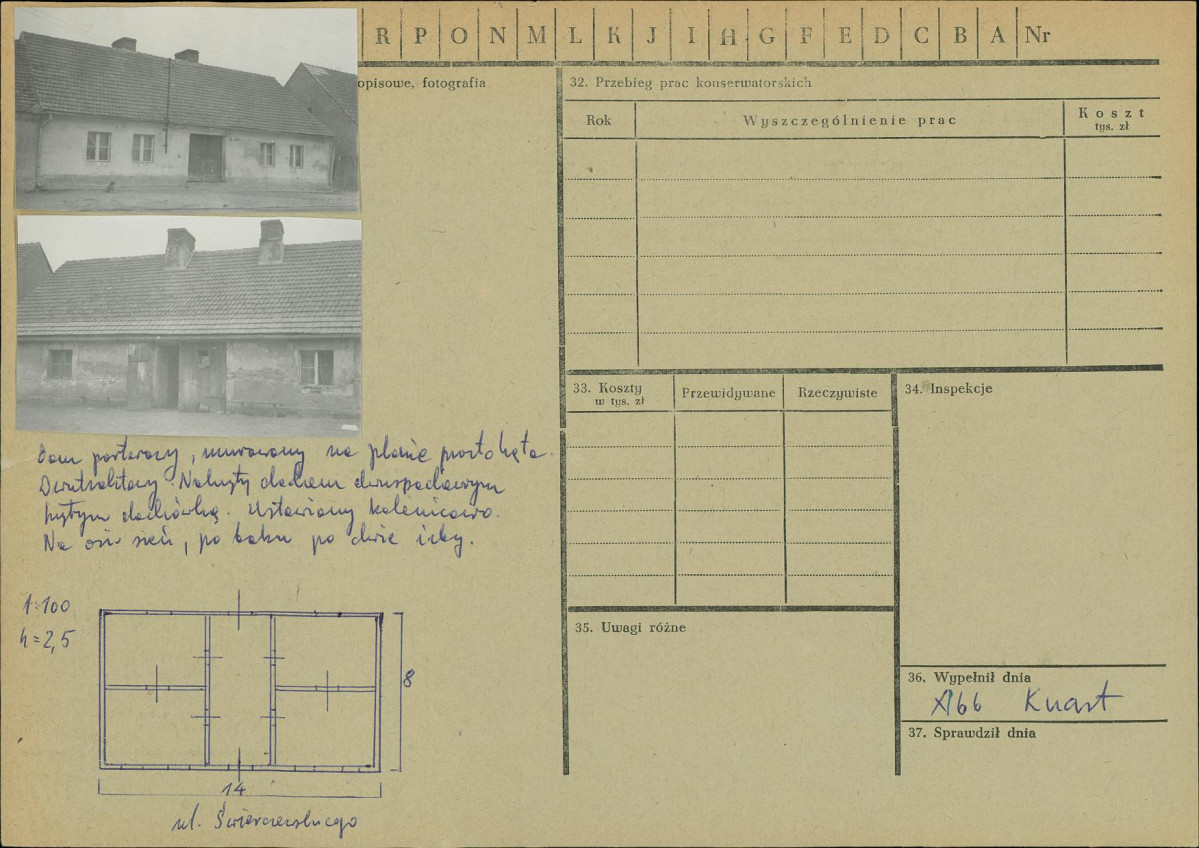 R P O N M L K J I H G F E D C B A Nr
opisowe, fotografia
32. Przebieg prac konserwatorskich
Rok Wyszczególnienie prac Koszt
tys. zł
33. Koszty
w tys. zł
Przewidywane Rzeczywiste
34. Inspekcje
Dom parterowy, murowany na planie prostokąta.
Dwutraktowy. Nakryty dachem dwuspadowym
krytym dachówką. Ustawiony kalenicowo.
Na osi sień, po boku po dwie izby.
1:100
h=2,5
8
14
ul. Świerczewskiego
35. Uwagi różne
36. Wypełnił dnia
X/66 Knast
37. Sprawdził dnia